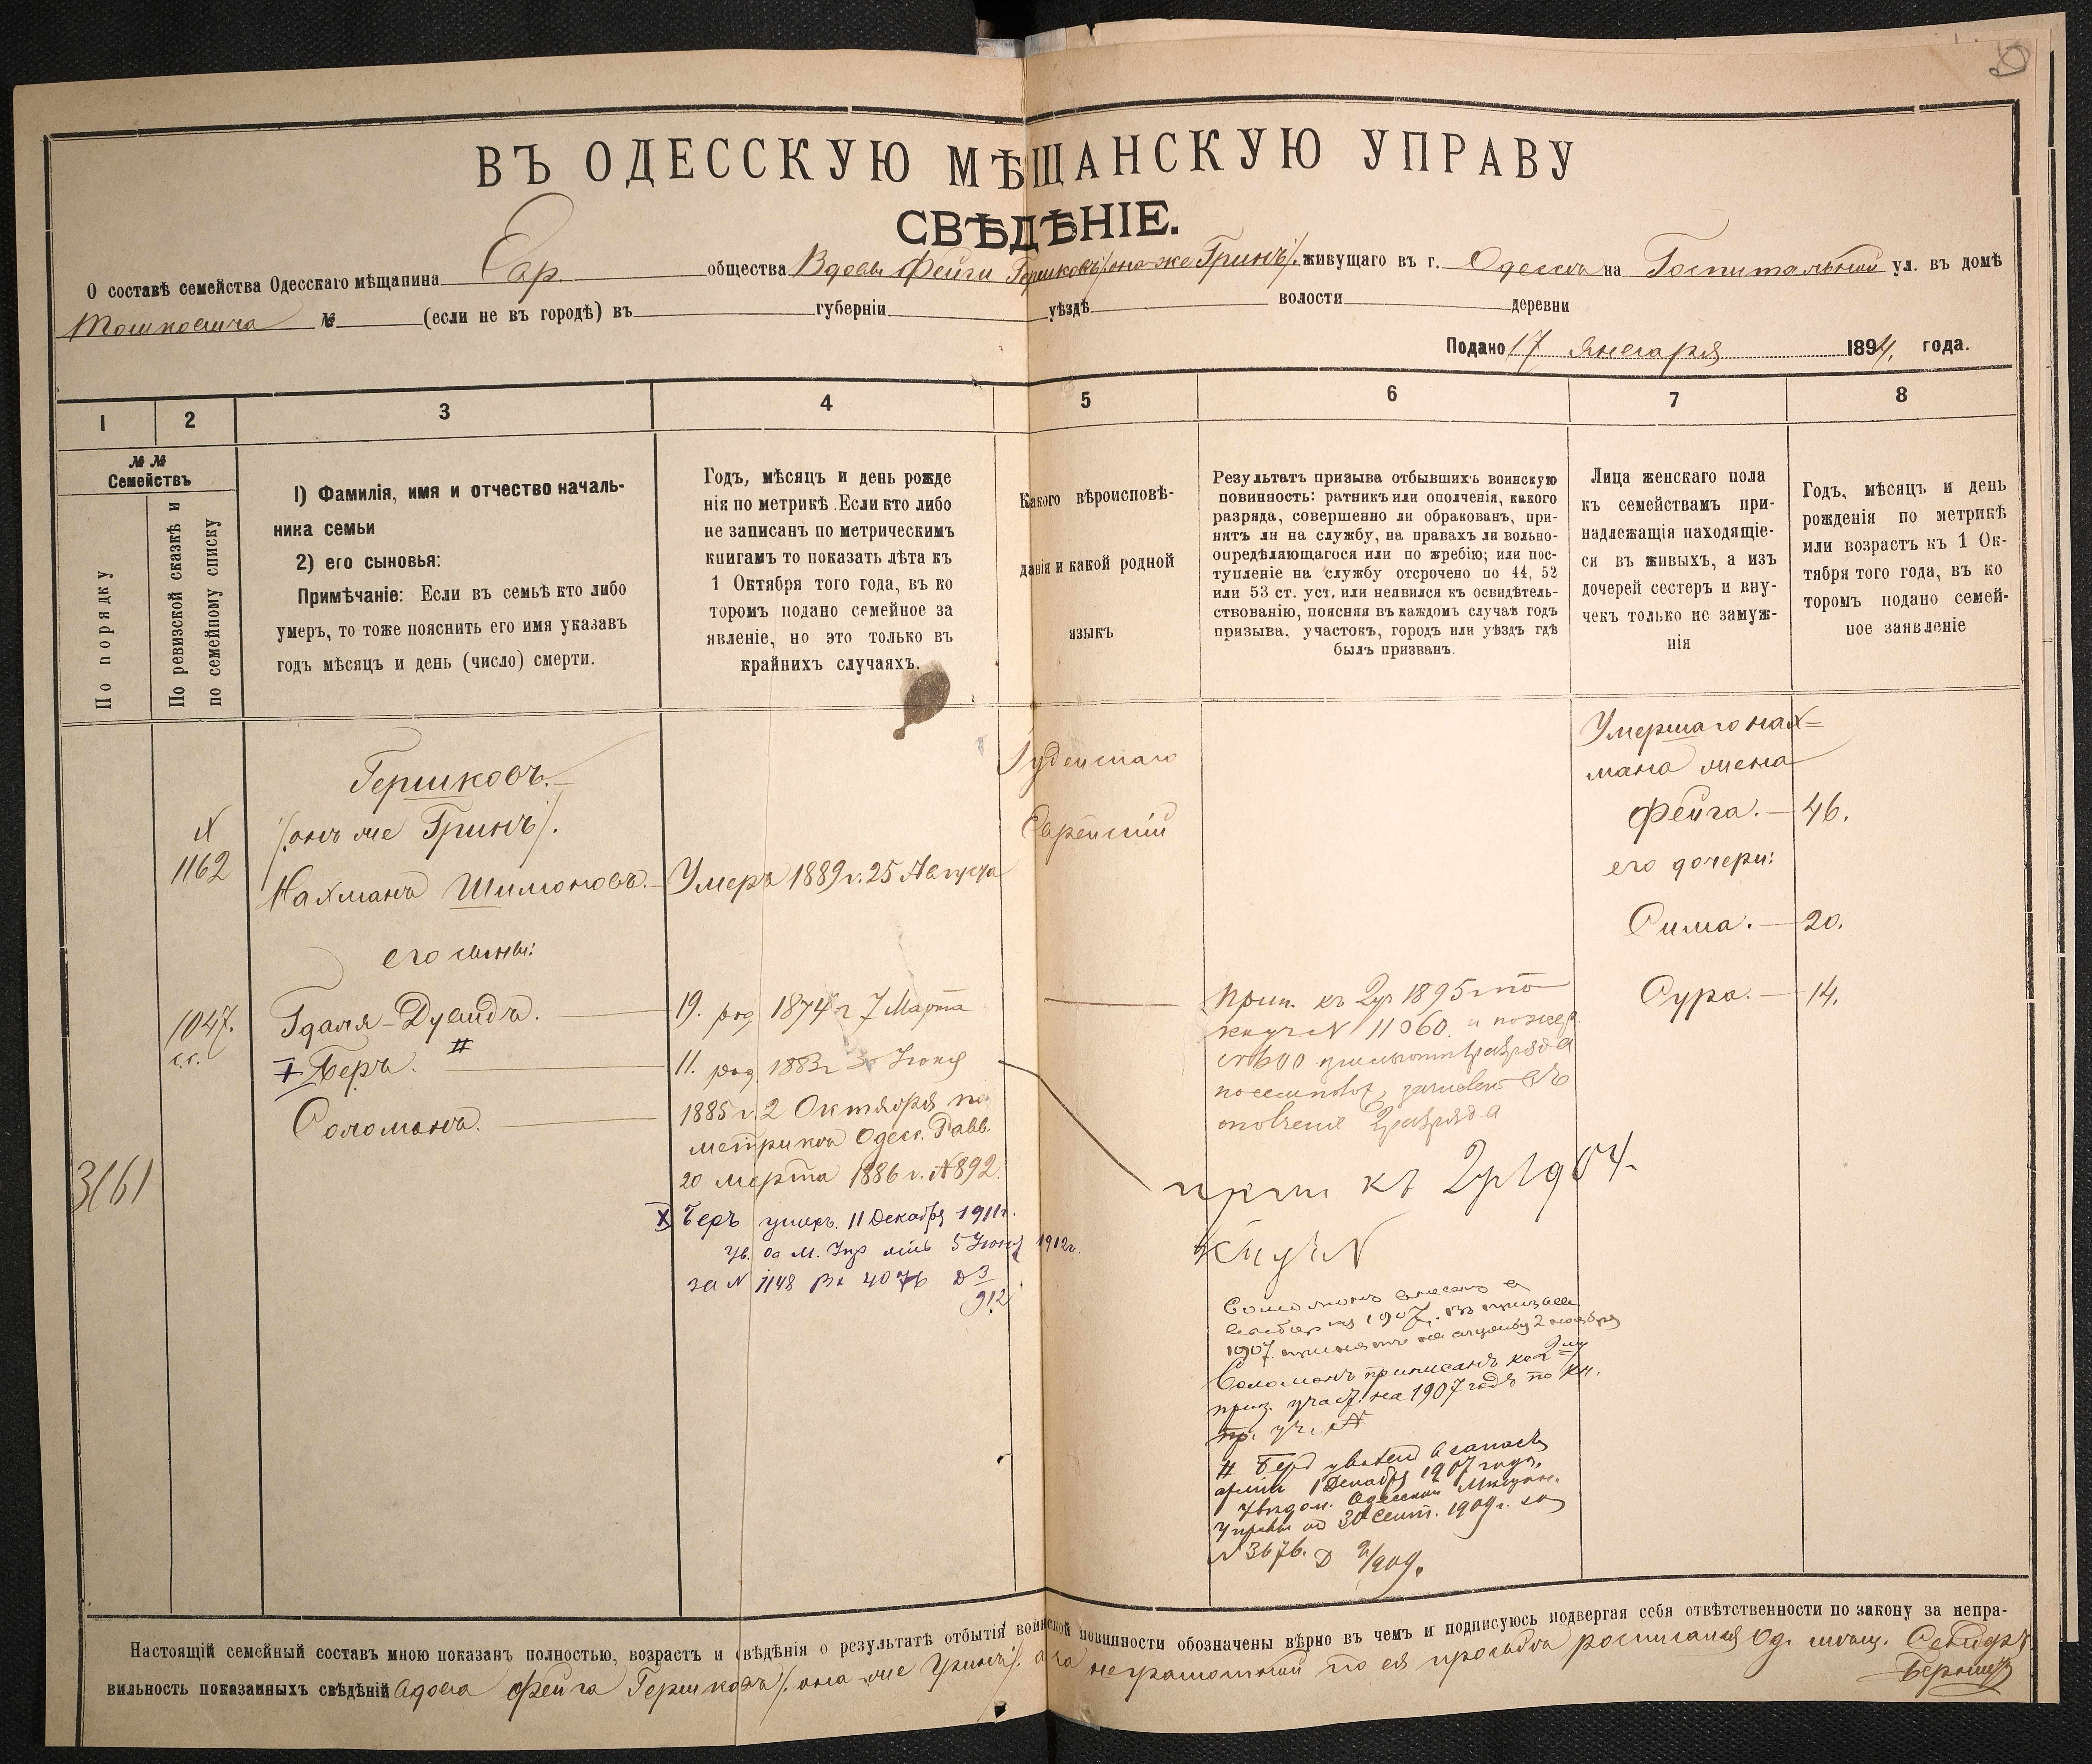 ВЪ ОДЕССКУЮ МѢЩАНСКУЮ УПРАВУ
СВѢДѢНІЕ.
О составѣ семейства Одесскаго мѣщанина Евр. общества Вдовы Фейги Гершковъ /она же Гринъ/. живущаго въ г. Одесса на Госпитальной ул. въ домѣ
Мошковича № (если не въ городѣ) въ губерніи уѣздѣ волости деревни
Подано 17 января 1894, года.
1 2 3 4 5 6 7 8
№ №
Семействъ
По порядку
По ревизской сказкѣ и
по семейному списку
1) Фамилія, имя и отчество началь-
ника семьи
2) его сыновья:
Примѣчаніе: Если въ семьѣ кто либо
умеръ, то тоже пояснить его имя указавъ
годъ мѣсяцъ и день (число) смерти.
Годъ, мѣсяцъ и день рожде
нія по метрикѣ. Если кто либо
не записанъ по метрическимъ
книгамъ то показать лѣта къ
1 Октября того года, въ ко
торомъ подано семейное за
явленіе, но это только въ
крайнихъ случаяхъ.
Какого вѣроисповѣ-
данія и какой родной
языкъ
Результатъ призыва отбывшихъ воинскую
повинность: ратникъ или ополченія, какого
разряда, совершенно ли обракованъ, при-
нятъ ли на службу, на правахъ ли вольно-
опредѣляющагося или по жребію; или пос-
тупленіе на службу отсрочено по 44, 52
или 53 ст. уст. или неявился къ освидѣтель-
ствованію, поясняя въ каждомъ случаѣ годъ
призыва, участокъ, городъ или уѣздъ гдѣ
былъ призванъ.
Лица женскаго пола
къ семействамъ при-
надлежащія находящіе-
ся въ живыхъ, а изъ
дочерей сестеръ и вну-
чекъ только не замуж-
нія
Годъ, мѣсяцъ и день
рожденія по метрикѣ
или возрастъ къ 1 Ок-
тября того года, въ ко
торомъ подано семей-
ное заявленіе
Гершковъ.
/онъ же Гринъ/.
№
1162
Нахманъ Шимоновъ. Умеръ 1889 г. 25 Августа
Іудейскаго
Еврейскій
Умершаго нах=
мана жена
Фейга. — 46.
его дочери:
Сима. — 20.
Сура. — 14.
его сыны:
1047.
с.с.
Гдаля-Дувидъ. 19. род 1874 г 7 Марта
Беръ. # 11. род 1883 г Іюня
Соломонъ. 1885 г. 2 Октября по
метрика Одесс. Равв.
20 марта 1886 г. №892.
3161
X Беръ умеръ. 11 Декабря 1911 г.
ув. Од М. Упр 5 Іюня 1912 г.
за № 1148 Вх 4076 Д 3/912
Прип. къ 2 уч 1895 г по
кн уч № 11060.
№ 600
зачисленъ въ
ополченіе 2 разряда
прип къ 2 уч 1904.
кн уч №
1907. въ призывъ
1907. принятъ на службу 2 ноября
Соломонъ приписанъ ко 2му
приз. участ. на 1907 годъ по кн.
пр. уч. №
# Беръ уволенъ в запасъ
арміи 1 Декабря 1907 года,
Увѣдом. Одесской Мѣщан.
Управы от 30 Сент. 1909 г. за
№ 3676. Д 2/909.
Настоящій семейный составъ мною показанъ полностью, возрастъ и свѣдѣнія о результатѣ отбытія воинской повинности обозначены вѣрно въ чемъ и подписуюсь подвергая себя отвѣтственности по закону за непра-
вильность показанныхъ свѣдѣній Вдова Фейга Гершковъ /. она же Гринъ/. а за неграмотной по ея просьбѣ росписался Од. мѣщ.